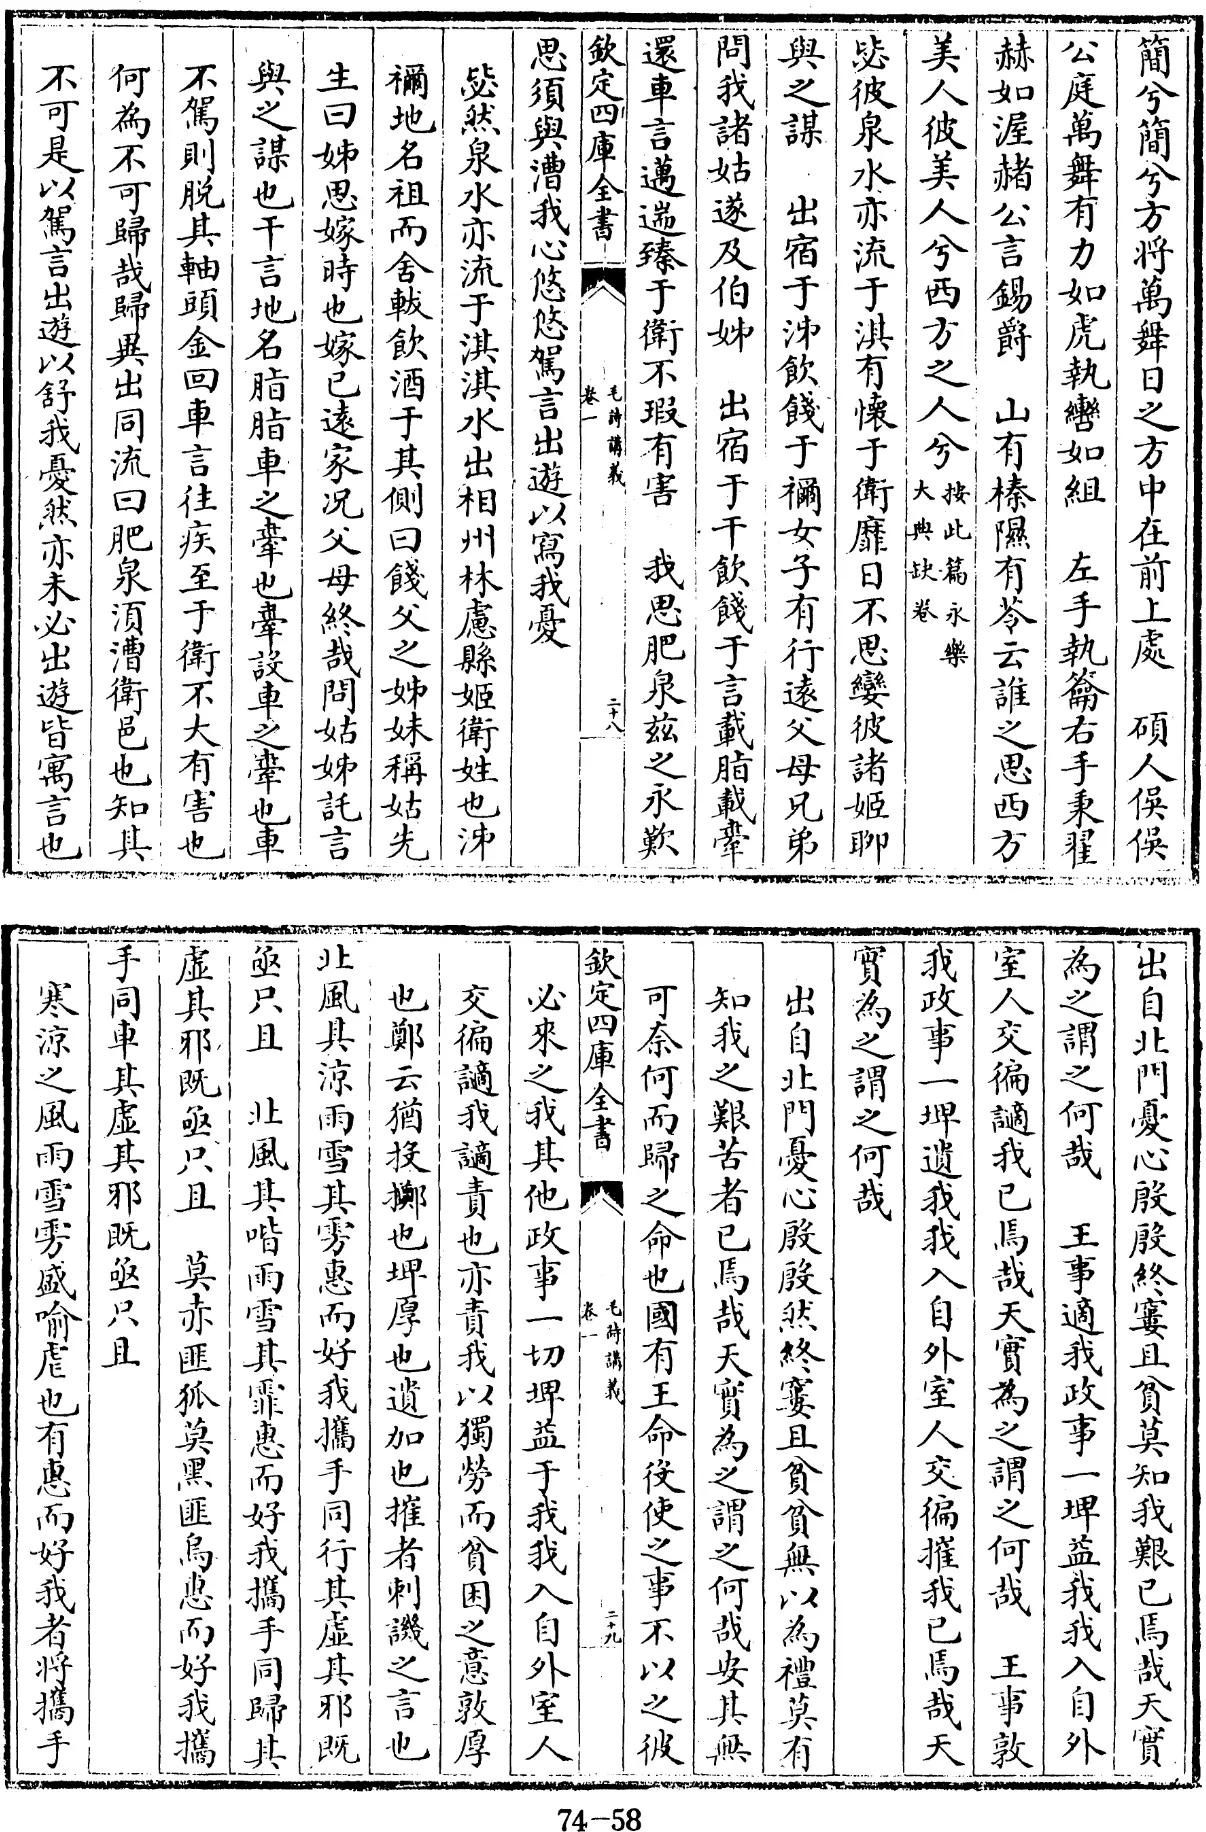 簡兮簡兮方將萬舞日之方中在前上處　碩人俁俁
公庭萬舞有力如虎執轡如組　左手執籥右手秉翟
赫如渥赭公言錫爵　山有榛隰有苓云誰之思西方
美人彼美人兮西方之人兮按此篇永樂大典缺卷
毖彼泉水亦流于淇有懷于衛靡日不思孌彼諸姬聊
與之謀　出宿于泲飲餞于禰女子有行遠父母兄弟
問我諸姑遂及伯姊　出宿于干飲餞于言載脂載舝
還車言邁遄臻于衛不瑕有害　我思肥泉茲之永歎
欽定四庫全書　毛詩講義卷一　二十八
思須與漕我心悠悠駕言出遊以寫我憂
毖然泉水亦流于淇淇水出相州林慮縣姬衛姓也泲
禰地名祖而舍軷飲酒于其側曰餞父之姊妹稱姑先
生曰姊思嫁時也嫁已遠家况父母終哉問姑姊託言
與之謀也干言地名脂脂車之舝也舝設車之舝也車
不駕則脱其軸頭金回車言往疾至于衛不大有害也
何為不可歸哉歸異出同流曰肥泉須漕衛邑也知其
不可是以駕言出遊以舒我憂然亦未必出遊皆寓言也
出自北門憂心殷殷終窶且貧莫知我艱已焉哉天實
為之謂之何哉　王事適我政事一埤益我我入自外
室人交徧讁我已焉哉天實為之謂之何哉　王事敦
我政事一埤遺我我入自外室人交徧摧我已焉哉天
實為之謂之何哉
出自北門憂心殷殷然終窶且貧貧無以為禮莫有
知我之艱苦者已焉哉天實為之謂之何哉安其無
可奈何而歸之命也國有王命役使之事不以之彼
欽定四庫全書　毛詩講義卷一　二十九
必來之我其他政事一切埤益于我我入自外室人
交徧讁我讁責也亦責我以獨勞而貧困之意敦厚
也鄭云猶投擲也埤厚也遺加也摧者刺譏之言也
北風其涼雨雪其雱惠而好我攜手同行其虛其邪既
亟只且　北風其喈雨雪其霏惠而好我攜手同歸其
虛其邪既亟只且　莫赤匪狐莫黑匪烏惠而好我攜
手同車其虛其邪既亟只且
寒涼之風雨雪雱盛喻虐也有惠而好我者將攜手
74-58